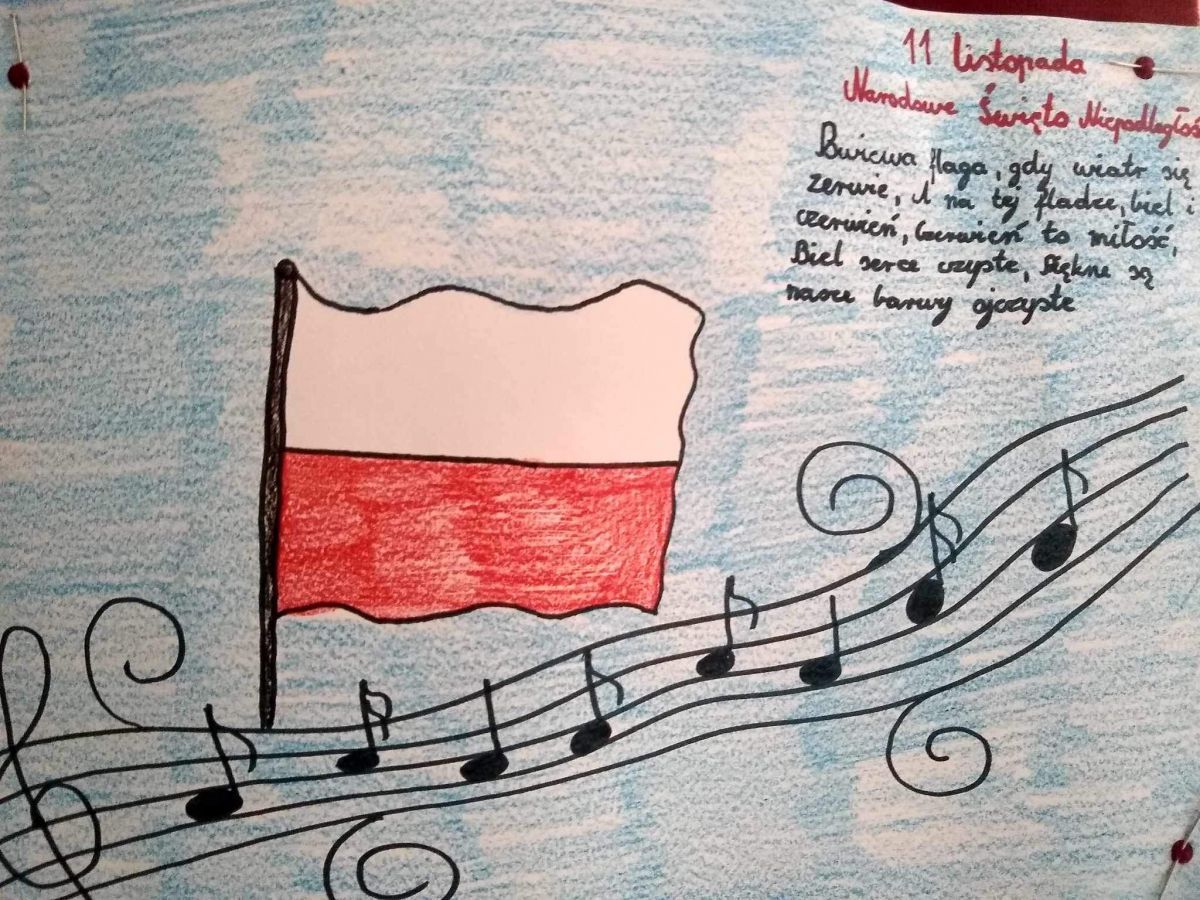 11 listopada
Narodowe Święto Niepodległoś
Powiewa flaga, gdy wiatr się
zerwie, A na tej fladze, biel i
czerwień, Czerwień to miłość,
Biel serce czyste, Piękne są
nasze barwy ojczyste